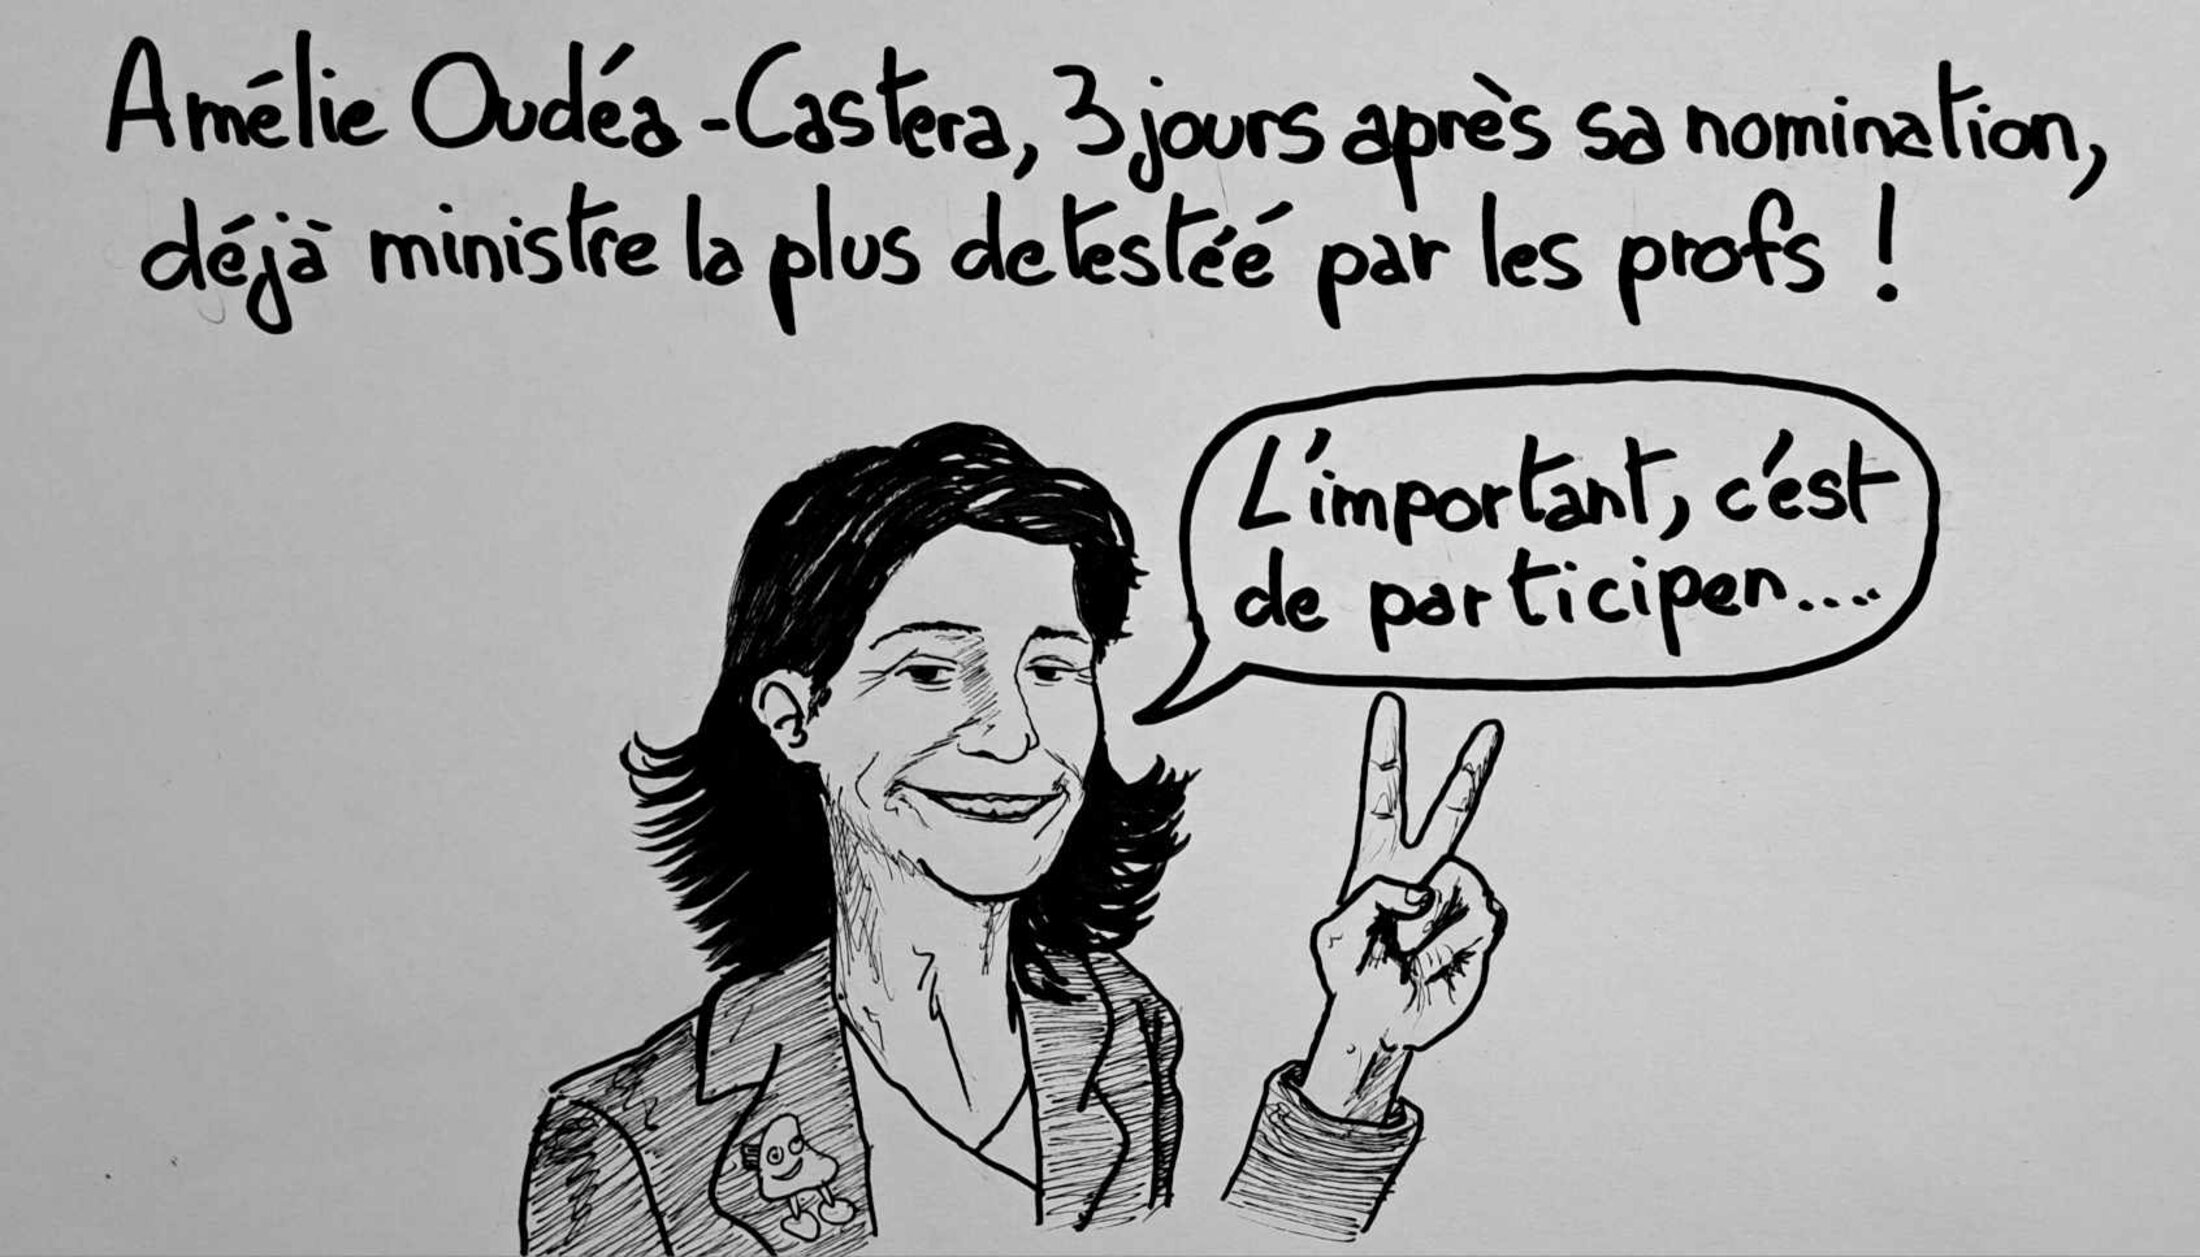 Amélie Oudéa-Castera, 3 jours après sa nomination,
déjà ministre la plus detestéé par les profs !
L'important, c'est
de participer....